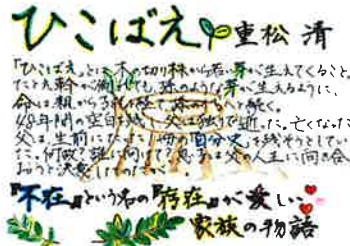 ひこばえ 重松 清
「ひこばえ」とは、木の切り株から若い芽が生えてくること。
たとえ幹が倒れても、孫のような芽が生えるように、
命は親から子、孫へと続く。
48年間の空白を経て、父は独りで逝った。亡くなった
父は、生前にたった一冊の自分史を残そうとしてい
た。何故?誰に向けて?息子は父の人生に向き合
おうと決意したのだが…
『不在』という名の『存在』が愛しい
家族の物語